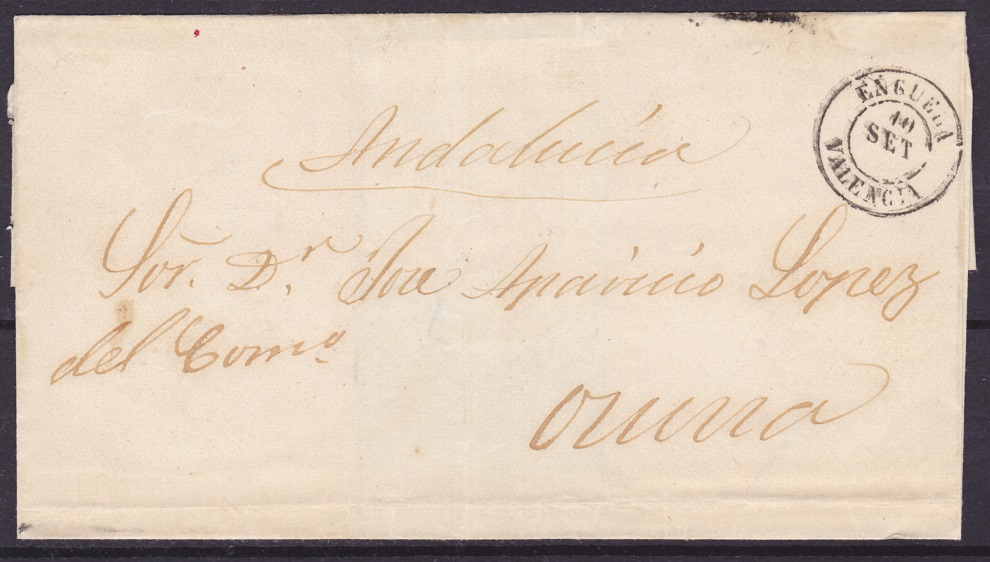 ENGUERA
10
SET
VALENCIA
Andalucia
Sor. Dr. Jose Aparicio Lopez
del Como
Osuna